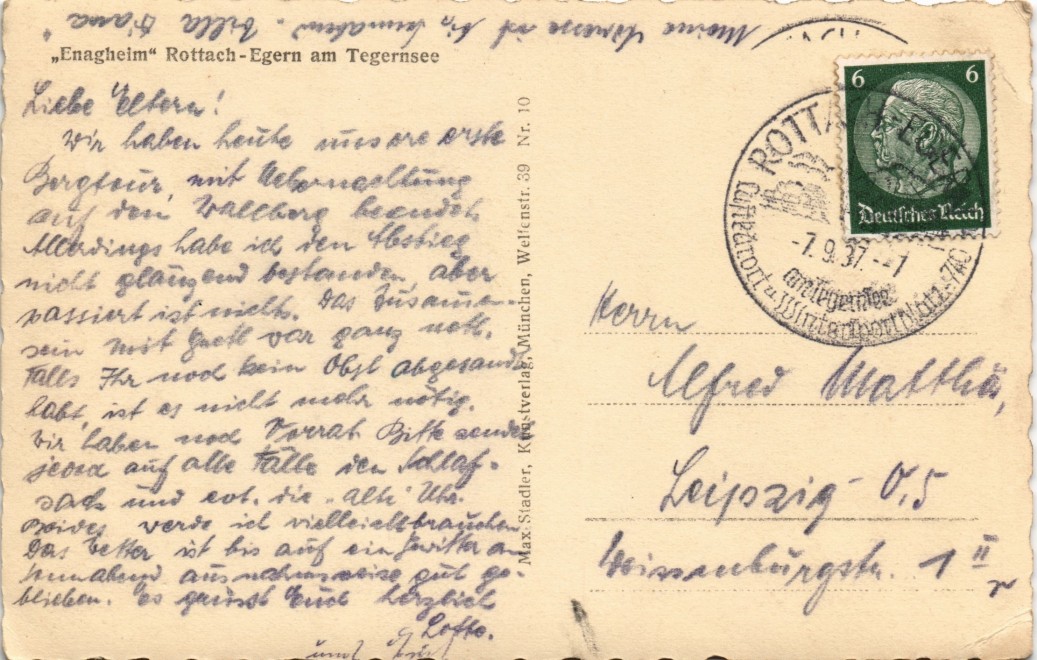 Meine Adresse ist bis Sonnabend „Villa Diana"
„Enagheim“ Rottach-Egern am Tegernsee
Liebe Eltern!
Wir haben heute unsere erste
Bergtour, mit Uebernachtung
auf dem Wallberg beendet.
Allerdings habe ich den Abstieg
nicht glänzend bestanden, aber
passiert ist nichts. Das Zusammen-
sein mit Gretl war ganz nett.
Falls Ihr noch kein Obst abgesandt
habt, ist es nicht mehr nötig.
Wir haben noch Vorrat. Bitte sendet
jedoch auf alle Fälle den Schlaf-
sack und evt. die alte Uhr.
Beides werde ich vielleicht brauchen.
Das Wetter ist bis auf ein Gewitter am
Sonnabend ausnahmsweise gut ge-
blieben. Es grüsst Euch herzlich
Lotte.
und
Max Stadler, Kunstverlag, München, Welfenstr. 39 Nr. 10
6 6
Deutsches Reich
ROTTACH-EGERN
-7.9.37.--1
am Tegernsee
Luftkurort u. Wintersportplatz
Herrn
Alfred Matthä,
Leipzig O,5
Weissenburgstr. 1 II
r